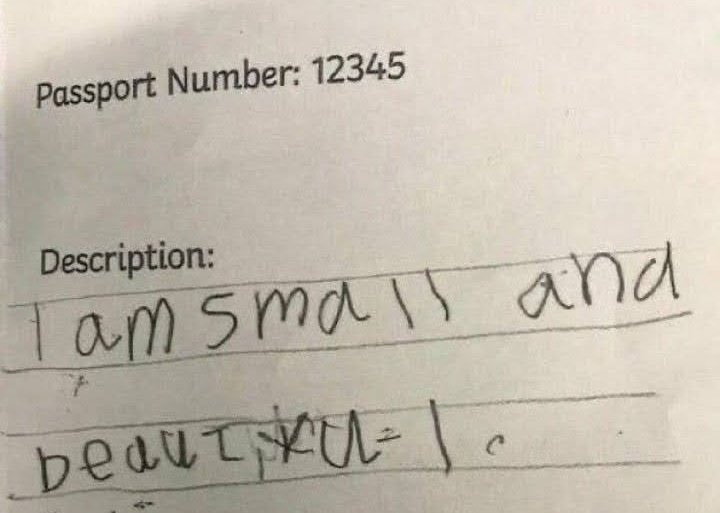 Passport Number: 12345
Description:
I am small and
beautiful.